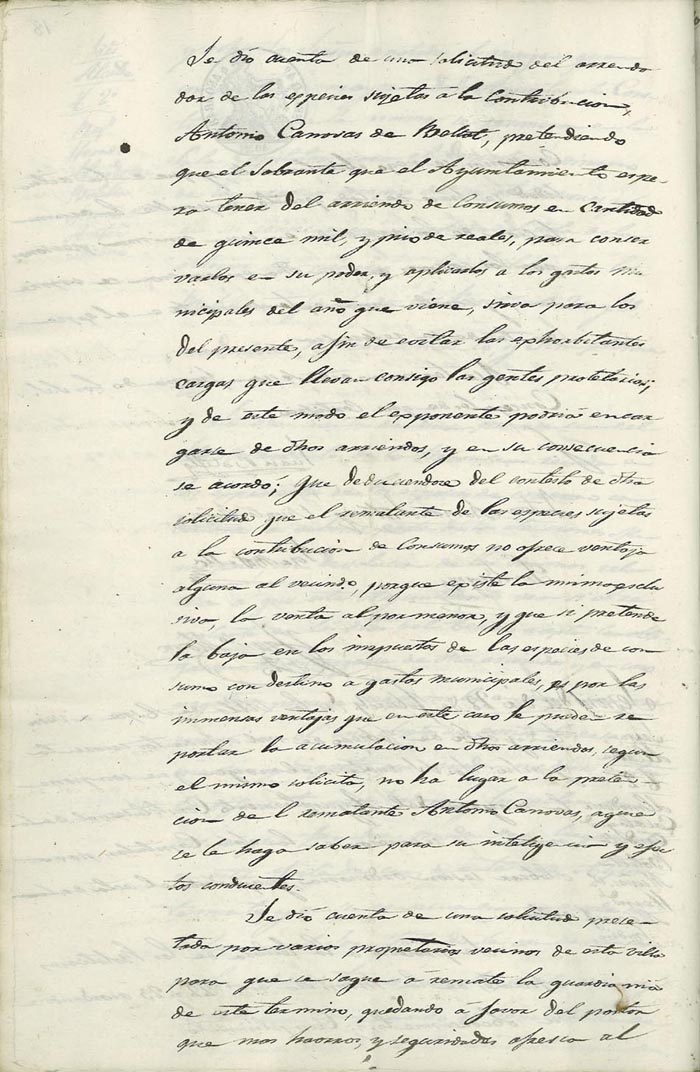 Se dió cuenta de una solicitud del arrenda
dor de las especies sujetas á la Contribucion,
Antonio Canovas de Bellot, pretendiendo
que el Sobrante que el Ayuntamiento espe-
ra tener del arriendo de Consumos en Cantidad
de quince mil, y pico de reales, para conser
varlos en su poder, y aplicarlos a los gastos mu
nicipales del año que viene, sirva para los
del presente, afin de evitar las exhorbitantes
cargas que llevan consigo las gentes proletarias;
y de este modo el exponente podria encar
garse de dhos arriendos, y en su consecuencia
se acordó; Que deduciendose del contesto de dha
solicitud que el rematante de las especies sujetas
a la contribucion de Consumos no ofrece ventaja
alguna al vecindo, porque existe la misma esclu
siva, la venta al por menor, y que si pretende
la baja en los impuestos de las especies de con
sumo con destino a gastos municipales, es por las
immensas ventajas que en este caso le puede re
portar la acumulacion en dhos arriendos, segun
el mismo solicita, no ha lugar a la preten
cion del rematante Antonio Canovas, a quien
se le haga saber para su inteligencia y efec
tos conducentes.
Se dió cuenta de una solicitud presen-
tada por varios propietarios vecinos de esta villa
para que se saque á remate la guardiania
de este termino, quedando á favor del postor
que mas haorros, y seguridades ofresca al